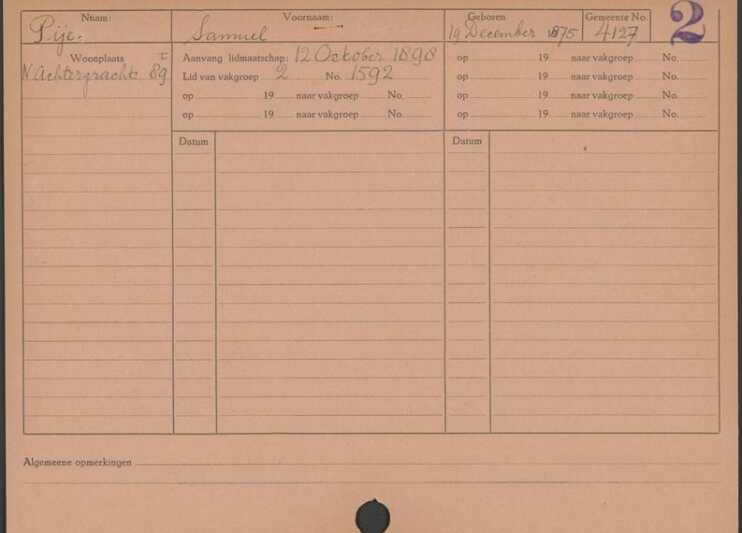 Naam: Voornaam: Geboren Gemeente No. 2
Pije. Samuel 19 December 1875 4127
Woonplaats I Aanvang lidmaatschap: 12 October 1898 op 19 naar vakgroep No.
N Achtergracht 89 Lid van vakgroep 2 No. 1592 op 19 naar vakgroep No.
op 19 naar vakgroep No. op 19 naar vakgroep No.
op 19 naar vakgroep No. op 19 naar vakgroep No.
Datum Datum
Algemeene opmerkingen